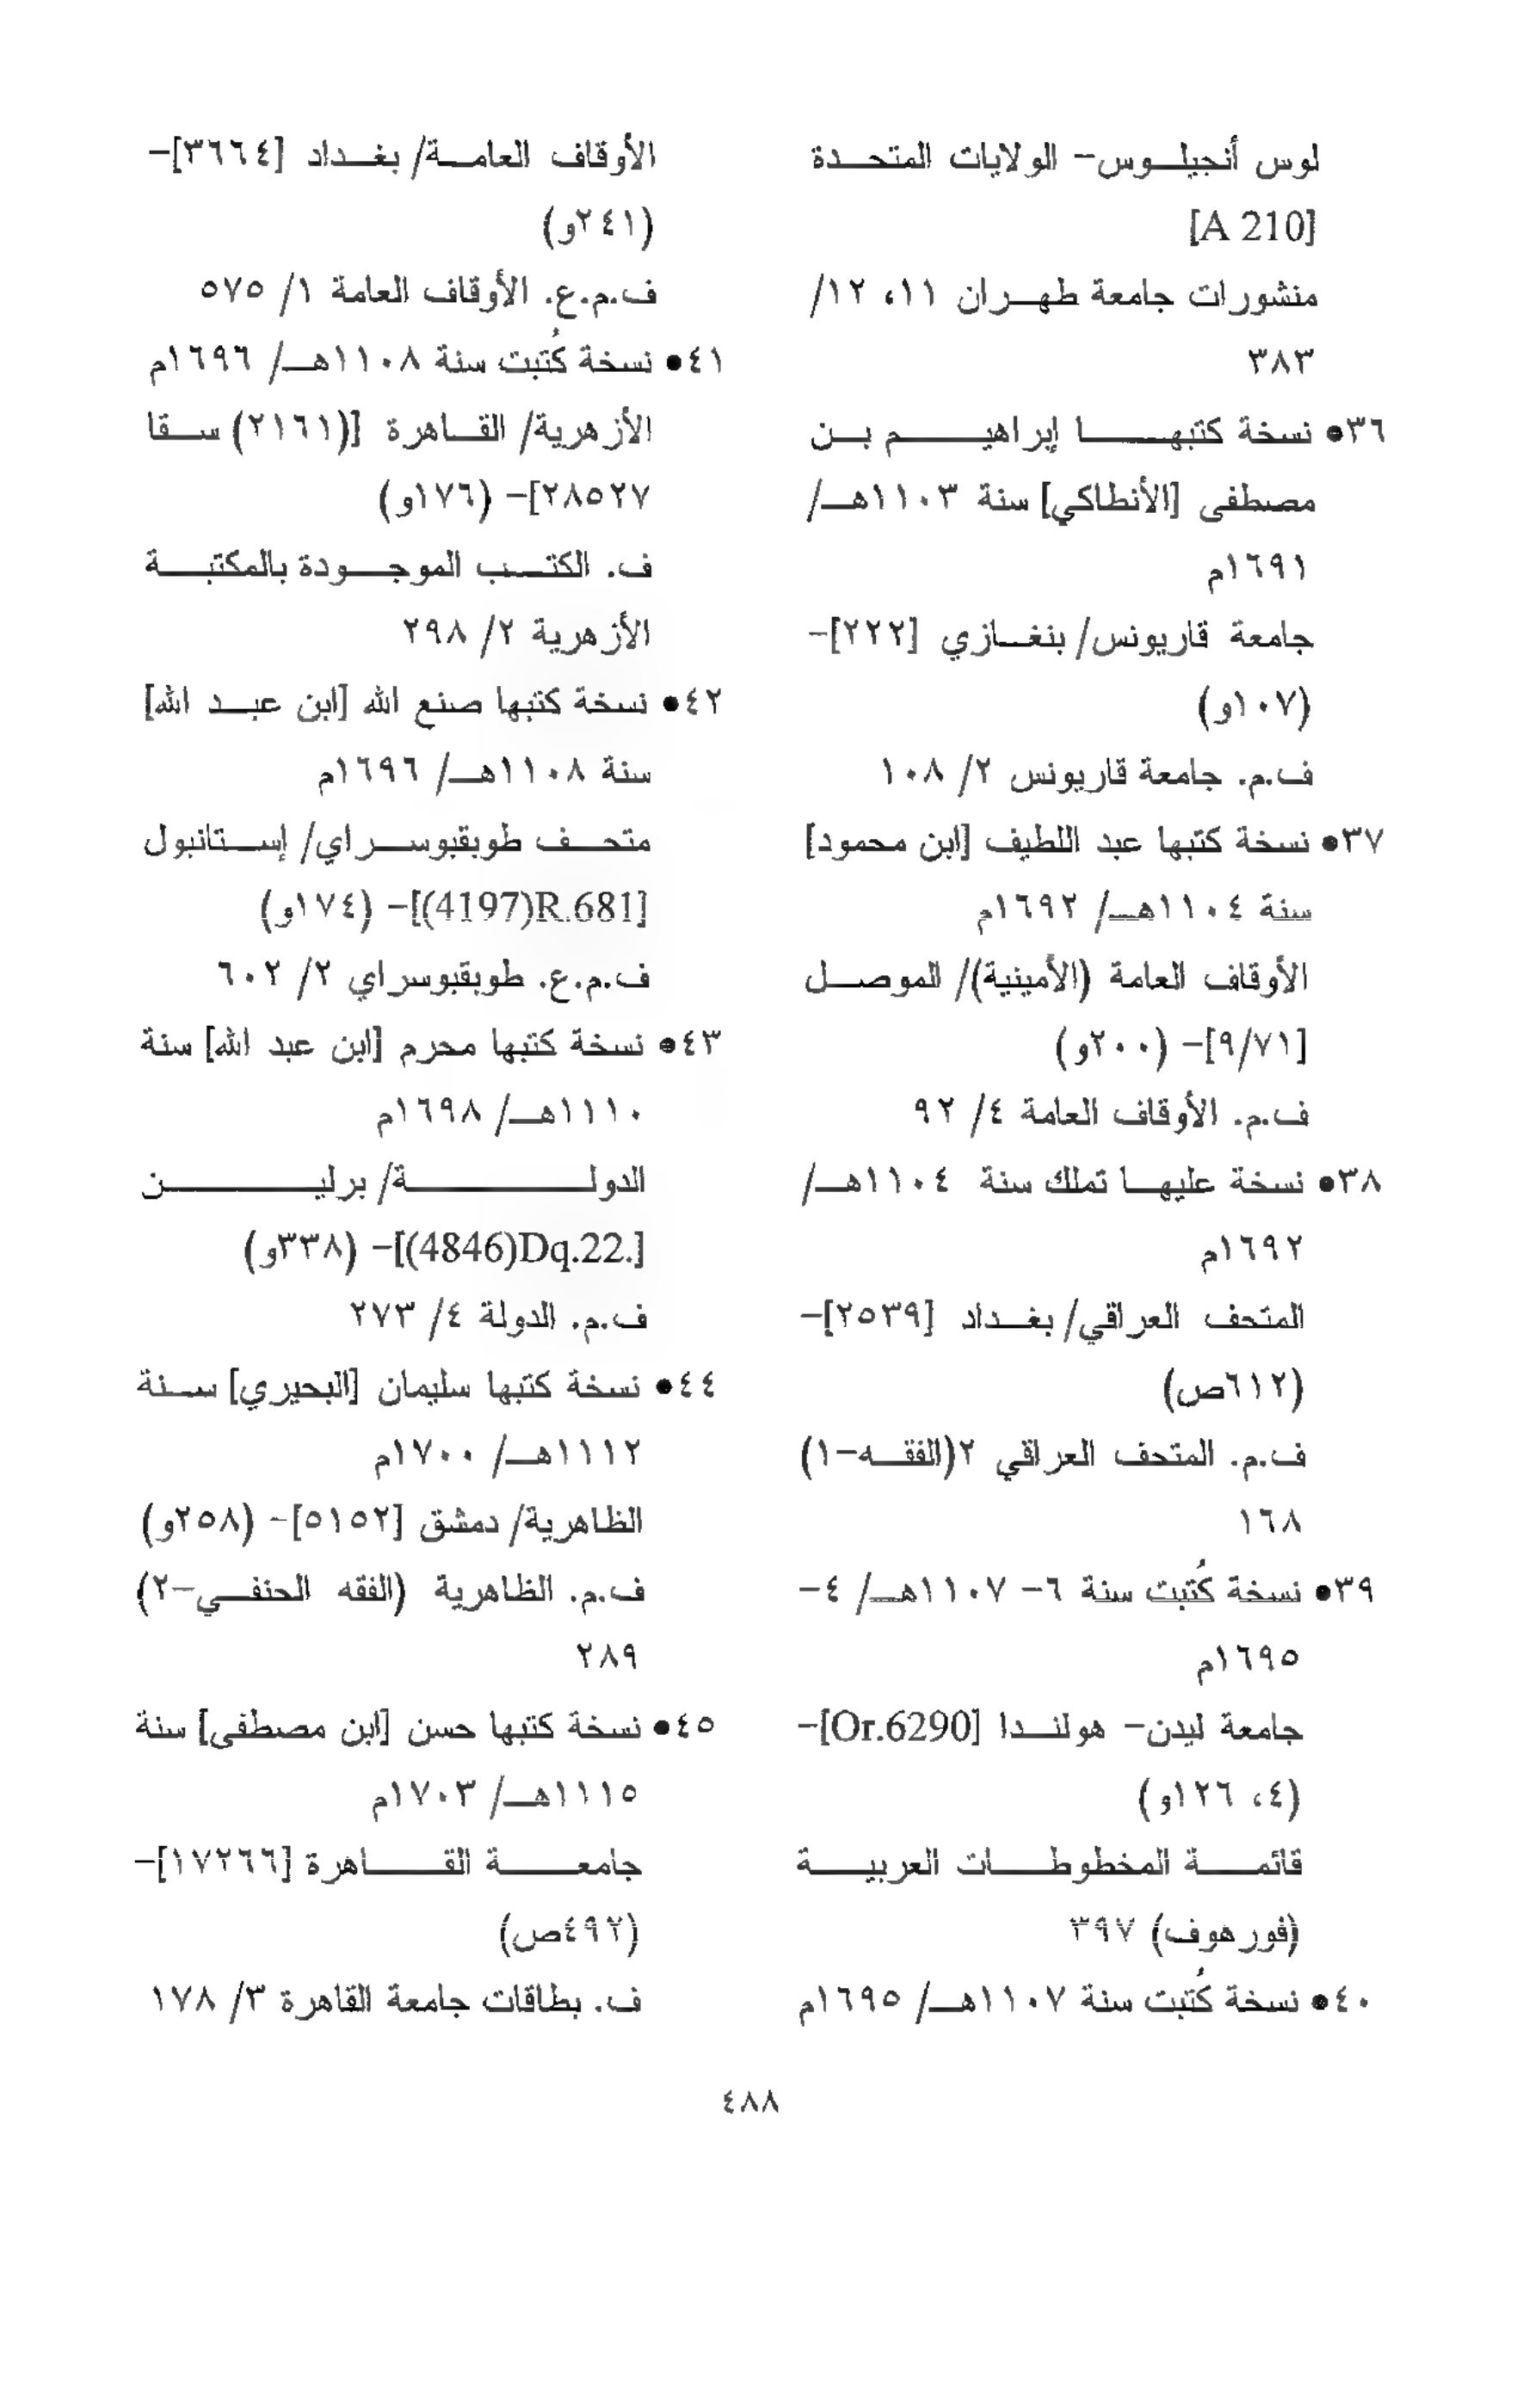 لوس أنجيلوس- الولايات المتحدة
[A 210]
منشورات جامعة طهران ١١، ١٢/
٣٨٣
٣٦● نسخة كتبها إبراهيم بن
مصطفى [الأنطاكي] سنة ١١٠٣هـ/
١٦٩١م
جامعة قاريونس/ بنغازي [٢٢٢]-
(١٠٧و)
ف.م. جامعة قاريونس ٢/ ١٠٨
٣٧● نسخة كتبها عبد اللطيف [ابن محمود]
سنة ١١٠٤هـ/ ١٦٩٢م
الأوقاف العامة (الأمينية)/ الموصل
[٩/٧١]- (٢٠٠و)
ف.م. الأوقاف العامة ٤/ ٩٢
٣٨● نسخة عليها تملك سنة ١١٠٤هـ/
١٦٩٢م
المتحف العراقي/ بغداد [٢٥٣٩]-
(٦١٢ص)
ف.م. المتحف العراقي ٢(الفقه-١)
١٦٨
٣٩● نسخة كُتبت سنة ٦- ١١٠٧هـ/ ٤-
١٦٩٥م
جامعة ليدن- هولندا [Or.6290]-
(٤، ١٢٦و)
قائمة المخطوطات العربية
(فورهوف) ٣٩٧
٤٠● نسخة كُتبت سنة ١١٠٧هـ/ ١٦٩٥م
الأوقاف العامة/ بغداد [٣٦٦٤]-
(٢٤١و)
ف.م.ع. الأوقاف العامة ١/ ٥٧٥
٤١● نسخة كُتبت سنة ١١٠٨هـ/ ١٦٩٦م
الأزهرية/ القاهرة [(٢١٦١) سقا
٢٨٥٢٧]- (١٧٦و)
ف. الكتب الموجودة بالمكتبة
الأزهرية ٢/ ٢٩٨
٤٢● نسخة كتبها صنع الله [ابن عبد الله]
سنة ١١٠٨هـ/ ١٦٩٦م
متحف طوبقبوسراي/ إستانبول
[(4197)R.681]- (١٧٤و)
ف.م.ع. طوبقبوسراي ٢/ ٦٠٢
٤٣● نسخة كتبها محرم [ابن عبد الله] سنة
١١١٠هـ/ ١٦٩٨م
الدولة/ برلين
[(4846)Dq.22.]- (٣٣٨و)
ف.م. الدولة ٤/ ٢٧٣
٤٤● نسخة كتبها سليمان [البحيري] سنة
١١١٢هـ/ ١٧٠٠م
الظاهرية/ دمشق [٥١٥٢]- (٢٥٨و)
ف.م. الظاهرية (الفقه الحنفي-٢)
٢٨٩
٤٥● نسخة كتبها حسن [ابن مصطفى] سنة
١١١٥هـ/ ١٧٠٣م
جامعة القاهرة [١٧٢٦٦]-
(٤٩٢ص)
ف. بطاقات جامعة القاهرة ٣/ ١٧٨
٤٨٨